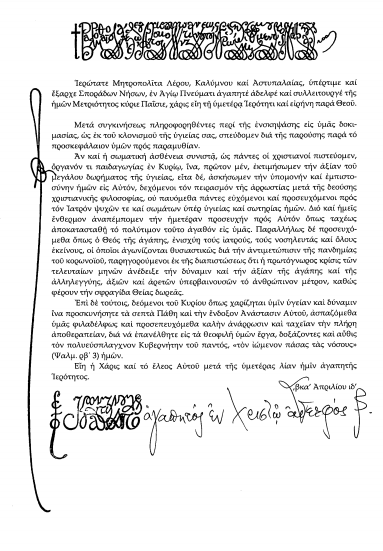 Ἱερώτατε Μητροπολῖτα Λέρου, Καλύμνου καί Ἀστυπαλαίας, ὑπέρτιμε καί
ἔξαρχε Σποράδων Νήσων, ἐν Ἁγίῳ Πνεύματι ἀγαπητέ ἀδελφέ καί συλλειτουργέ τῆς
ἡμῶν Μετριότητος κύριε Παΐσιε, χάρις εἴη τῇ ὑμετέρᾳ Ἱερότητι καί εἰρήνη παρά Θεοῦ.
Μετά συγκινήσεως πληροφορηθέντες περί τῆς ἐνσκηψάσης εἰς ὑμᾶς δοκι-
μασίας, ὡς ἐκ τοῦ κλονισμοῦ τῆς ὑγιείας σας, σπεύδομεν διά τῆς παρούσης παρά τό
προσκεφάλαιον ὑμῶν πρός παραμυθίαν.
Ἄν καί ἡ σωματική ἀσθένεια συνιστᾷ, ὡς πάντες οἱ χριστιανοί πιστεύομεν,
ὄργανόν τι παιδαγωγίας ἐν Κυρίῳ, ἵνα, πρῶτον μέν, ἐκτιμήσωμεν τήν ἀξίαν τοῦ
μεγάλου δωρήματος τῆς ὑγιείας, εἶτα δέ, ἀσκήσωμεν τήν ὑπομονήν καί ἐμπιστο-
σύνην ἡμῶν εἰς Αὐτόν, δεχόμενοι τόν πειρασμόν τῆς ἀρρωστίας μετά τῆς δεούσης
χριστιανικῆς φιλοσοφίας, οὐ παυόμεθα πάντες εὐχόμενοι καί προσευχόμενοι πρός
τόν Ἰατρόν ψυχῶν τε καί σωμάτων ὑπέρ ὑγιείας καί σωτηρίας ἡμῶν. Διό καί ἡμεῖς
ἔνθερμον ἀναπέμπομεν τήν ἡμετέραν προσευχήν πρός Αὐτόν ὅπως ταχέως
ἀποκατασταθῇ τό πολύτιμον τοῦτο ἀγαθόν εἰς ὑμᾶς. Παραλλήλως δέ προσευχό-
μεθα ὅπως ὁ Θεός τῆς ἀγάπης, ἐνισχύῃ τούς ἰατρούς, τούς νοσηλευτάς καί ὅλους
ἐκείνους, οἱ ὁποῖοι ἀγωνίζονται θυσιαστικῶς διά τήν ἀντιμετώπισιν τῆς πανδημίας
τοῦ κορωνοϊοῦ, παρηγορούμενοι ἐκ τῆς διαπιστώσεως ὅτι ἡ πρωτόγνωρος κρίσις τῶν
τελευταίων μηνῶν ἀνέδειξε τήν δύναμιν καί τήν ἀξίαν τῆς ἀγάπης καί τῆς
ἀλληλεγγύης, ἀξιῶν καί ἀρετῶν ὑπερβαινουσῶν τό ἀνθρώπινον μέτρον, καθώς
φέρουν τήν σφραγῖδα Θείας δωρεᾶς.
Ἐπί δέ τούτοις, δεόμενοι τοῦ Κυρίου ὅπως χαρίζηται ὑμῖν ὑγείαν καί δύναμιν
ἵνα προσκυνήσητε τά σεπτά Πάθη καί τήν ἔνδοξον Ἀνάστασιν Αὐτοῦ, ἀσπαζόμεθα
ὑμᾶς φιλαδέλφως καί προσεπευχόμεθα καλήν ἀνάρρωσιν καί ταχεῖαν τήν πλήρη
ἀποθεραπείαν, διά νά ἐπανέλθητε εἰς τά θεοφιλῆ ὑμῶν ἔργα, δοξάζοντες καί αὖθις
τόν πολυεύσπλαγχνον Κυβερνήτην τοῦ παντός, «τόν ἰώμενον πάσας τάς νόσους»
(Ψαλμ. ρβ΄ 3) ἡμῶν.
Εἴη ἡ Χάρις καί τό ἔλεος Αὐτοῦ μετά τῆς ὑμετέρας λίαν ἡμῖν ἀγαπητῆς
Ἱερότητος.
͵βκα΄ Ἀπριλίου ιδ΄
ἀγαπητός ἐν Χριστῷ ἀδελφός